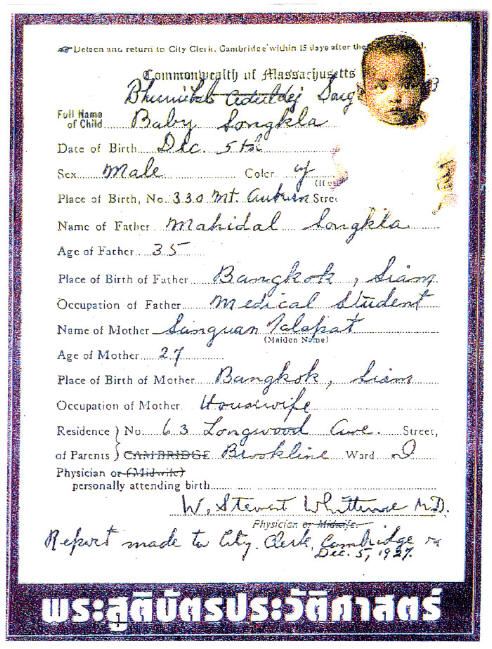 Detach and return to City Clerk, Cambridge within 15 days after the
Commonwealth of Massachusetts
Bhumibol Aduldej Song
Full Name of Child Baby Songkla
Date of Birth Dec. 5th
Sex Male Color y
Place of Birth, No. 330 Mt. Auburn Street
Name of Father Mahidol Songkla
Age of Father 35
Place of Birth of Father Bangkok, Siam
Occupation of Father Medical Student
Name of Mother Sanguan Talapat
(Maiden Name)
Age of Mother 27
Place of Birth of Mother Bangkok, Siam
Occupation of Mother Housewife
Residence No. 63 Longwood Ave. Street,
of Parents CAMBRIDGE Brookline Ward
Physician or (Midwife)
personally attending birth
W. Stewart Whittemore M.D.
Physician or Midwife.
Report made to City Clerk, Cambridge
Dec. 5, 1927.
พระสูติบัตรประวัติศาสตร์